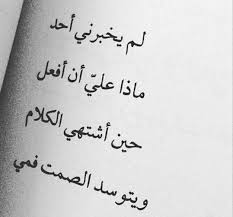 لم يخبرني أحد
ماذا عليّ أن أفعل
حين أشتهي الكلام
ويتوسد الصمت فمي